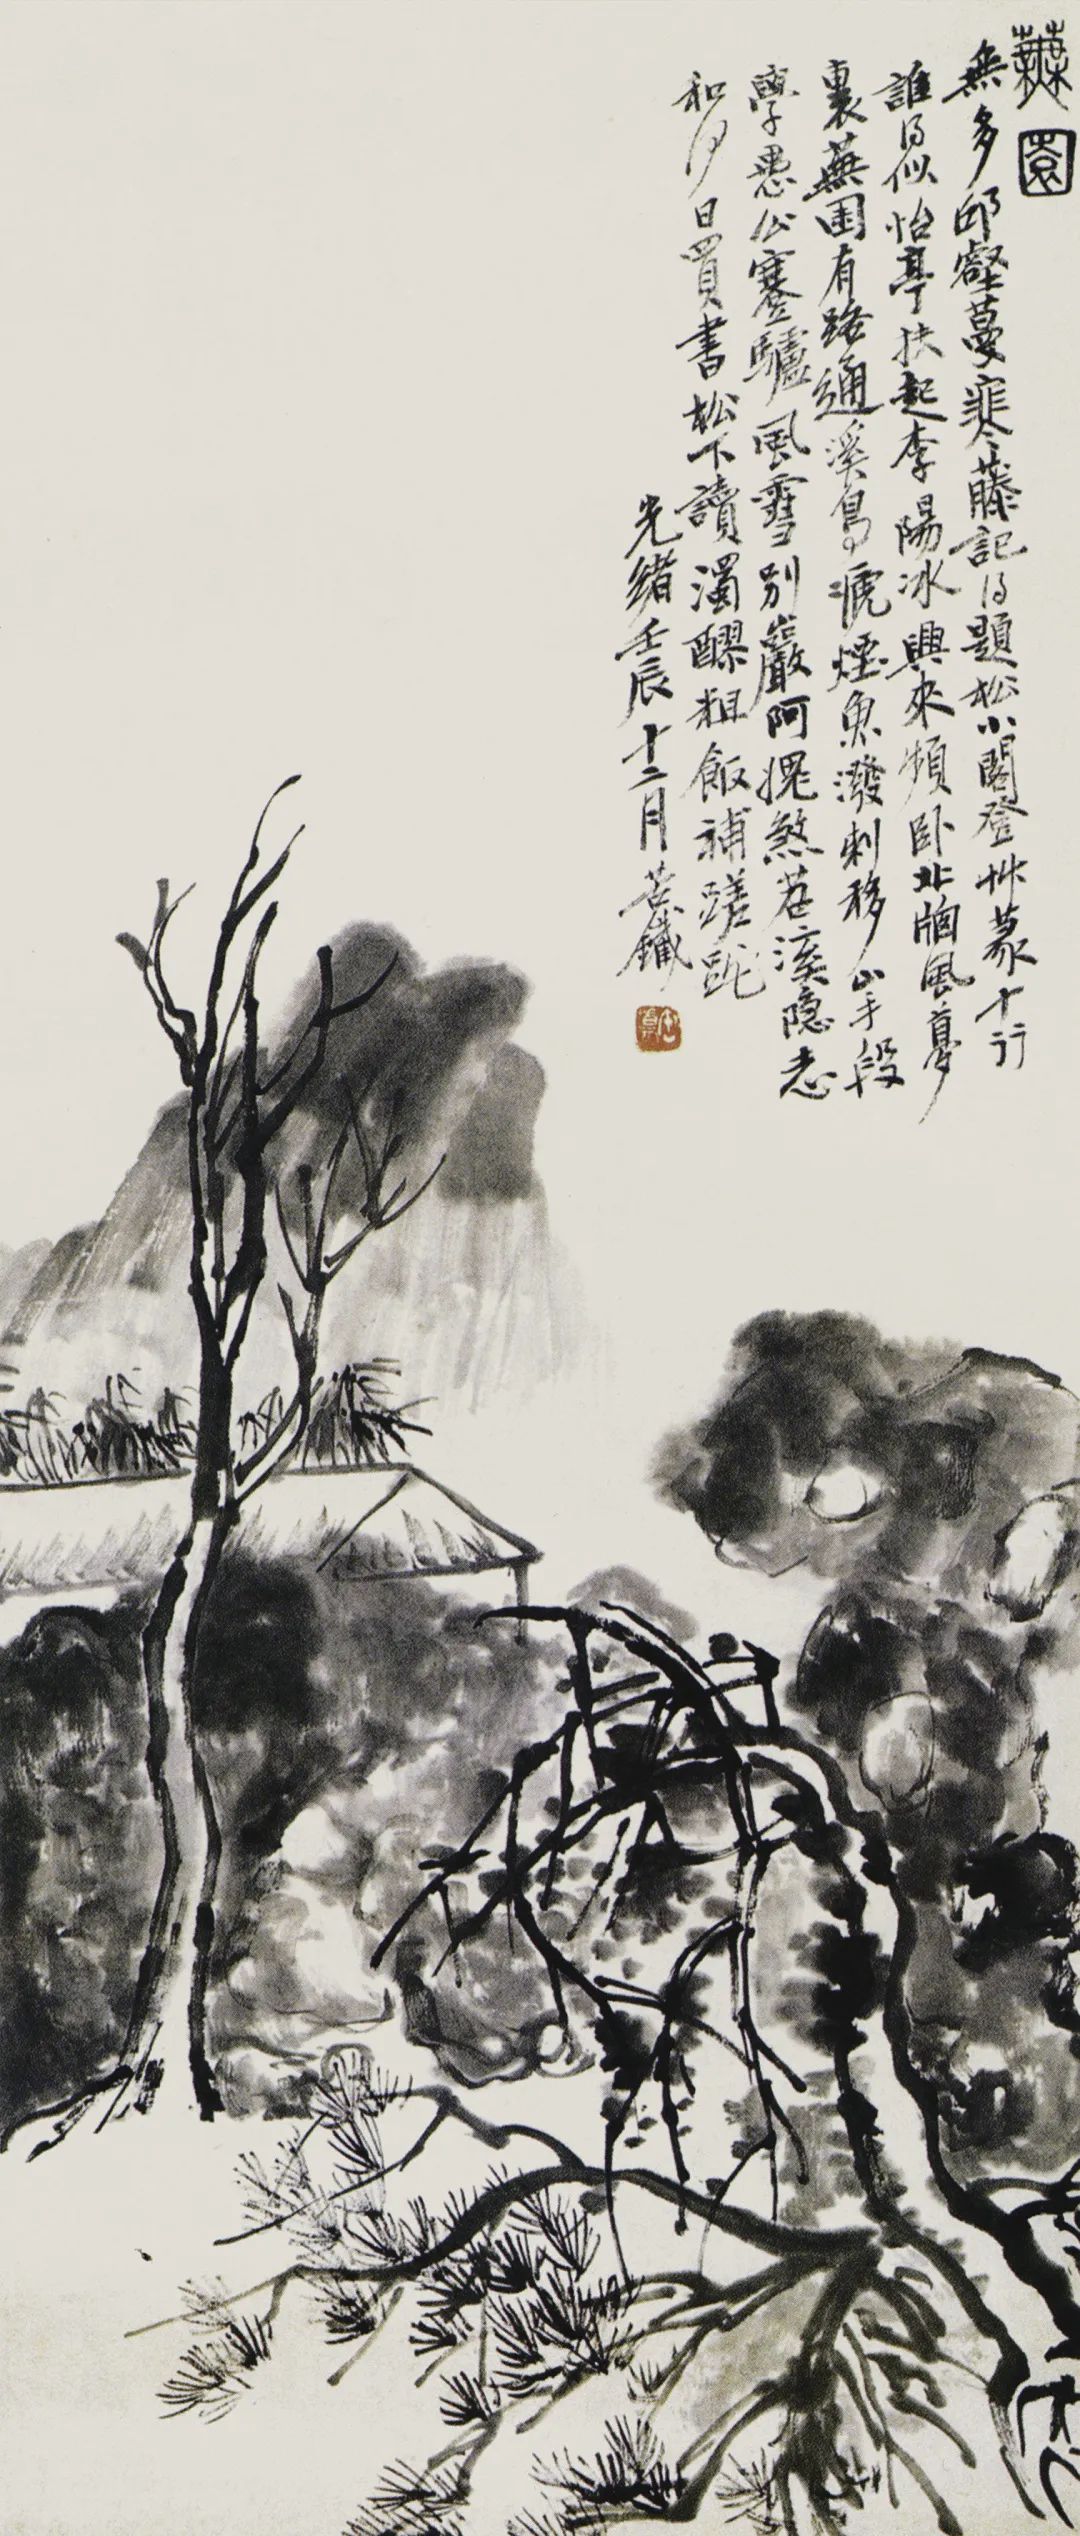 蕪園
無多邱壑蔓寒藤記得題松小閣登艸篆十行
誰得似怡亭扶起李陽冰興來頻臥北牖風夢
裏蕪園有路通溪鳥嗁煙魚潑剌移山手段
學愚公蹇驢風雪別巖阿愧煞苕溪隱志
和何日買書松下讀濁醪粗飯補蹉跎
光緒壬辰十二月苦鐵